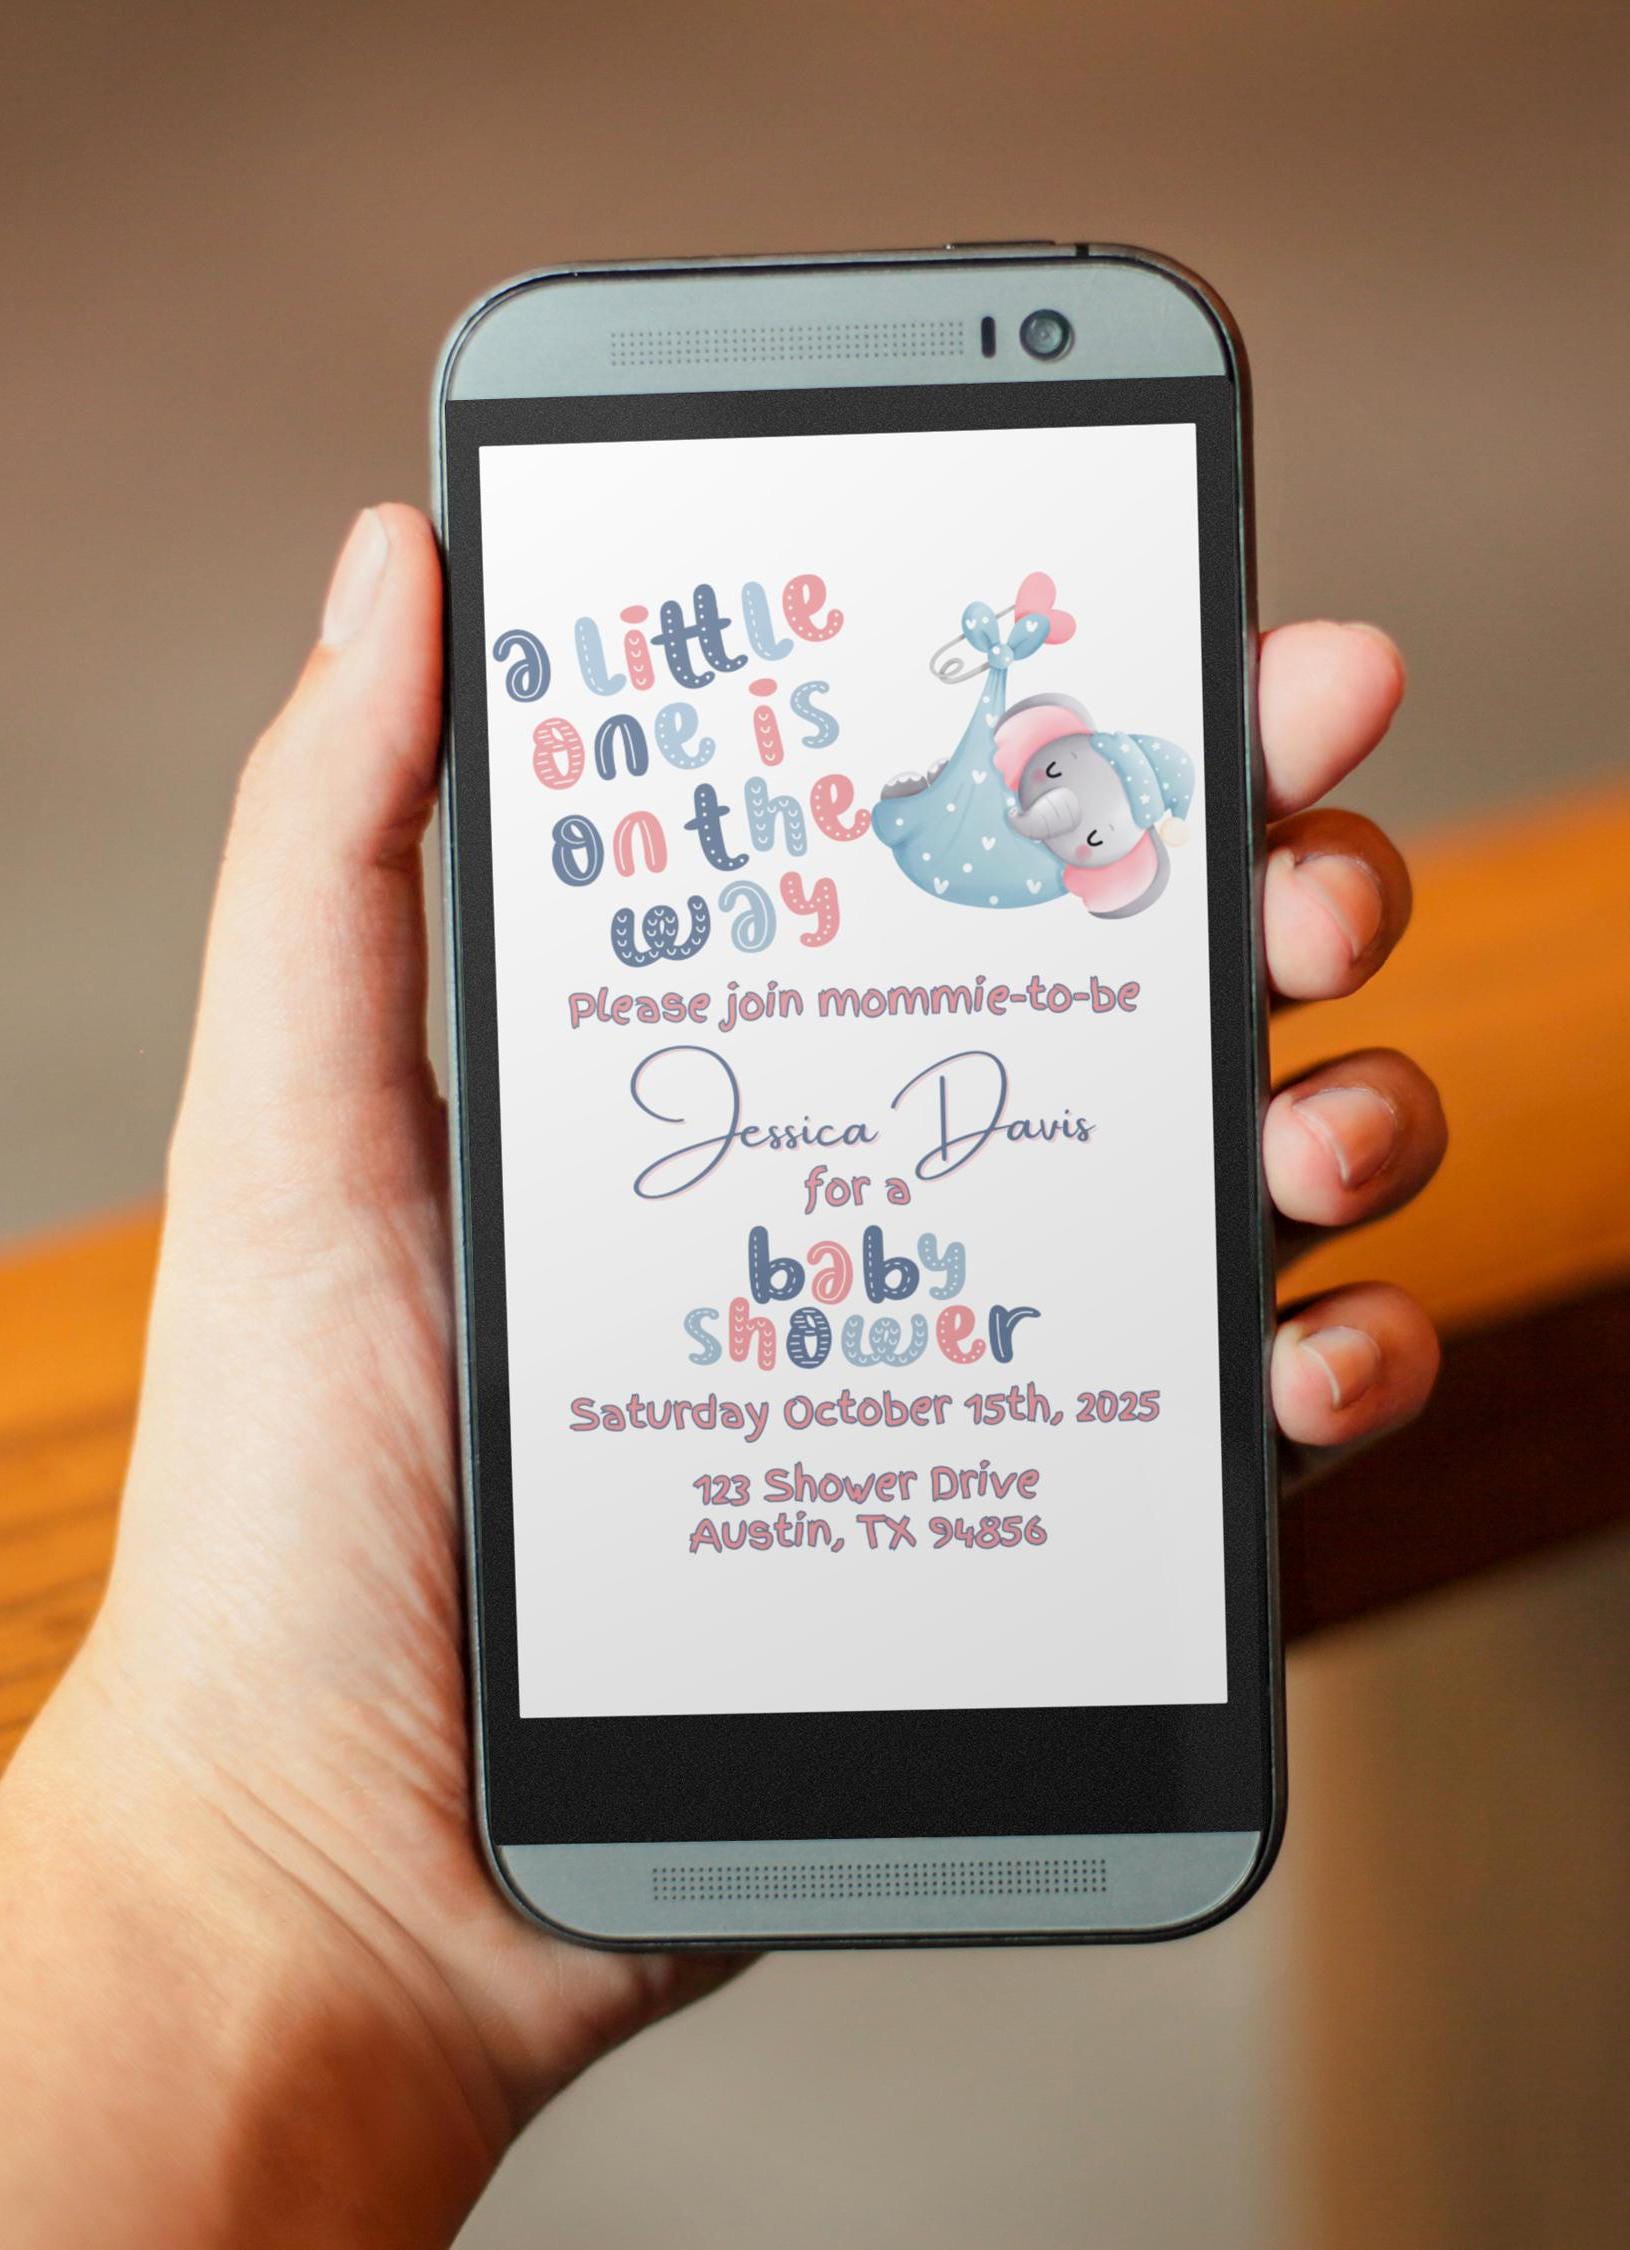 a little
one is
on the
way
Please join mommie-to-be
Jessica Davis
for a
baby
shower
Saturday October 15th, 2025
123 Shower Drive
Austin, TX 94856